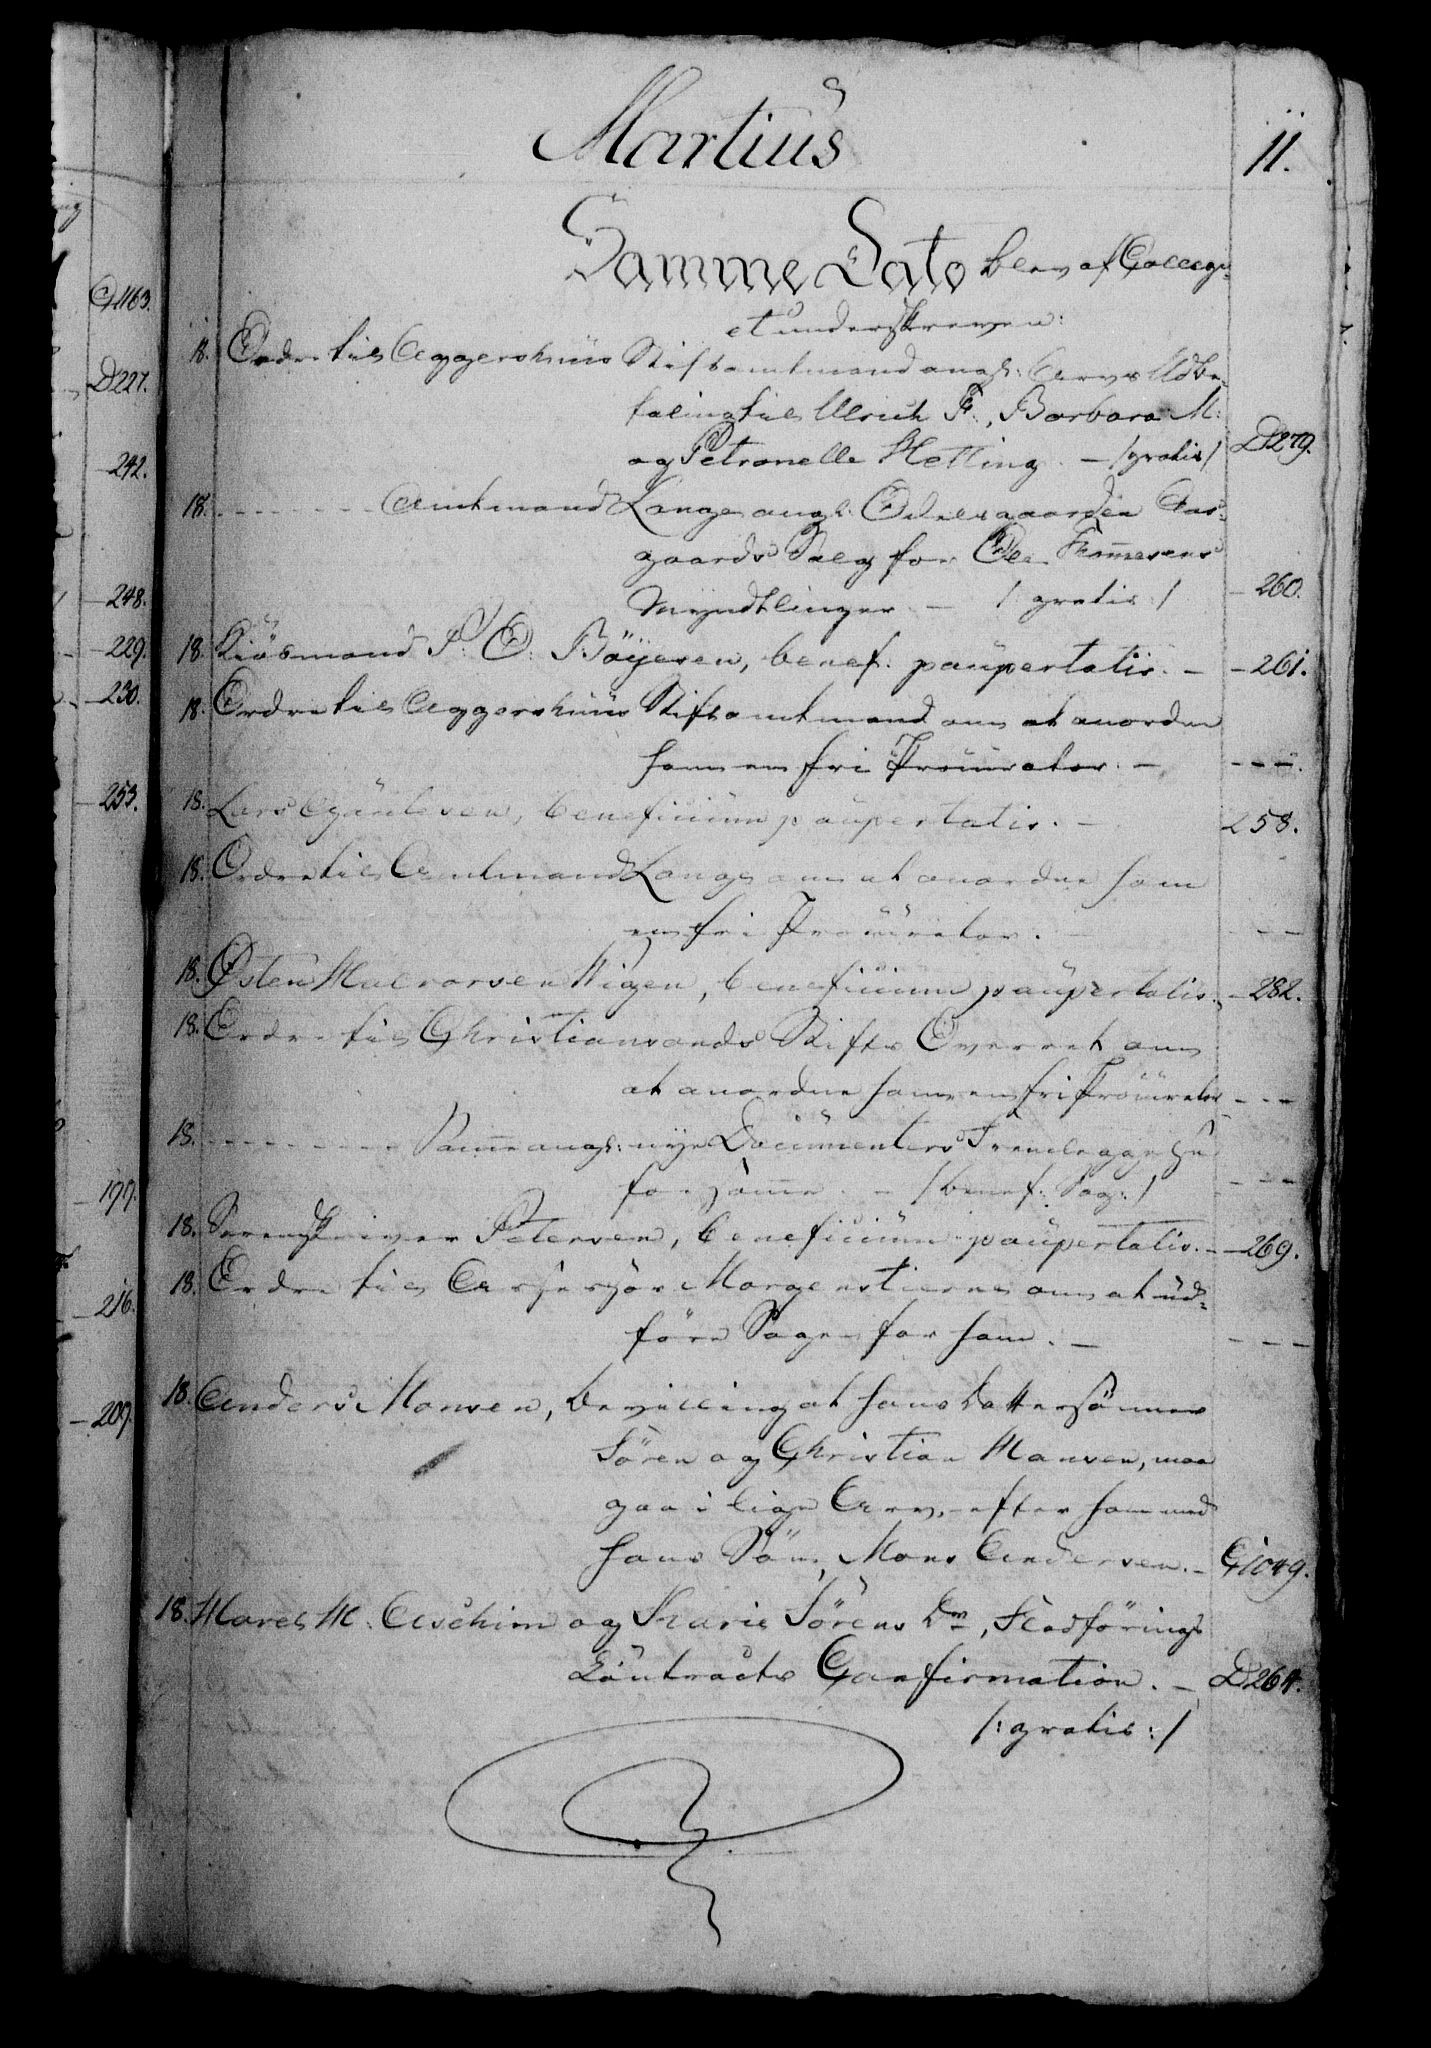 Martius
11.
Samme Dato blev af Collegi-
et underskreven:
18. Ordre til Aggershuus Stiftamtmand angl: Arvs Udbe-
taling til Ulrich F., Barbara M:
og Petronelle Hetting. – /gratis/ D279.
18. - - - - - - - Amtmand Lange angl: Odelsgaarden Aas-
gaards Salg for Ole Tommesens
Myndtlinger – /: gratis :/ – 260.
18. Kiöbmand P: O: Böyesen, benef: paupertatis. – – 261.
18. Ordre til Aggershuus Stiftamtmand om at anordne
ham en fri Procurator. – – – –.
18. Lars Gunlesen, beneficium paupertatis. – 258.
18. Ordre til Amtmand Lange om at anordne ham
en fri Procurator. – – –
18. Østen Halvorsen Stigen, beneficium paupertatis. – 282.
18. Ordre til Christiansands Stifts Overret om
at anordne ham en fri Procurator – – –
18. - - - - - - - Samme angl: nye Documenters Fremlæggelse
for samme. – /benef: Sag:/ – – –
18. Sorenskriver Petersen, beneficium paupertatis. – – 269.
18. Ordre til Assessor Morgenstierne om at ud-
före Sagen for ham. – – – –
18. Anders Monsen, bevilling at hans Dattersönner
Sören og Christian Hansen, maa
gaa i lige Arv, efter ham med
hans Sön, Mons Andersen. – G1049.
18. Harel M. Aschim og Karie Sörens Dr, Fledförings
Contracts Confirmation. – D264.
/: gratis :/
G1163.
D227.
– 242.
– 248.
– 229.
– 230.
– 253.
– 197.
– 216.
– 209.